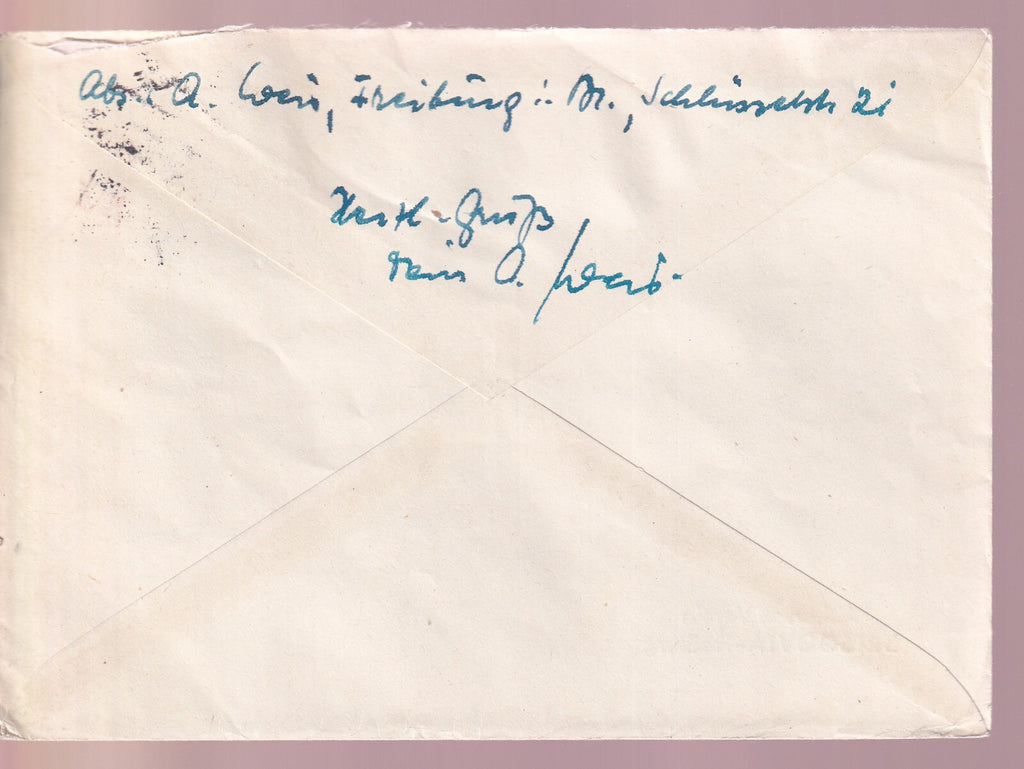 Abs.: A. Weis, Freiburg i. Br., Schlüsselstr. 2i
Herzl. Gruß
Dein A. Weis